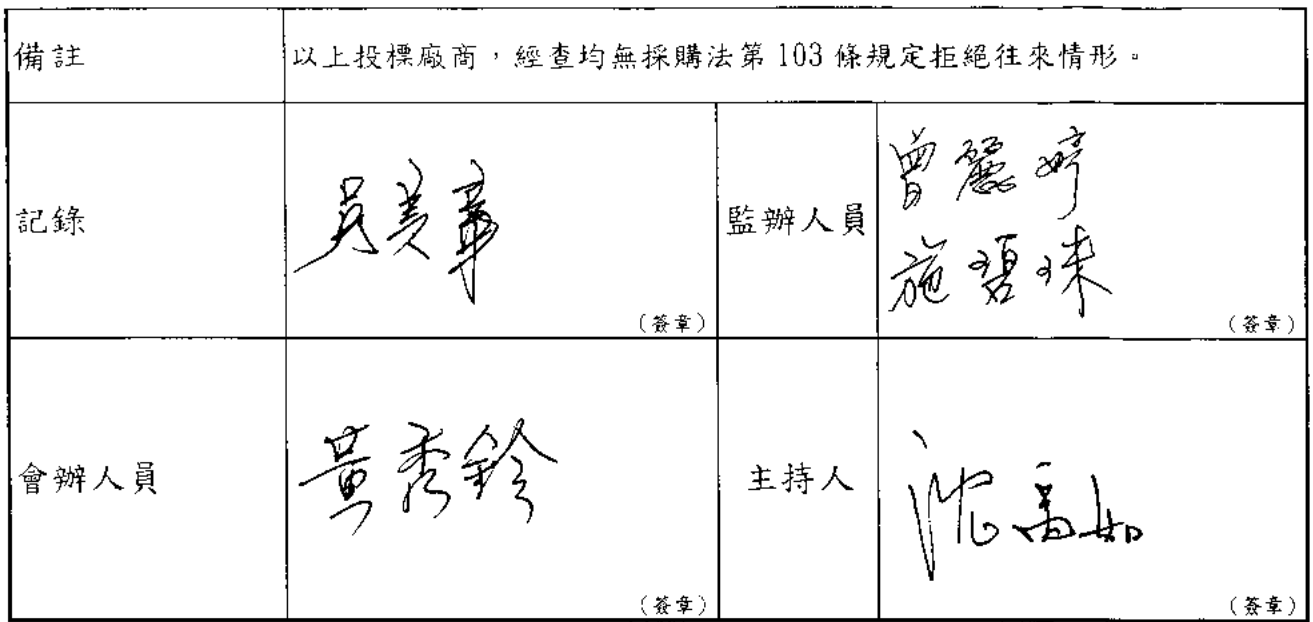 備註
以上投標廠商，經查均無採購法第103條規定拒絕往來情形。
記錄
吳美華
(簽章)
監辦人員
曾麗婷
施碧珠
(簽章)
會辦人員
黃秀鈴
(簽章)
主持人
(簽章)